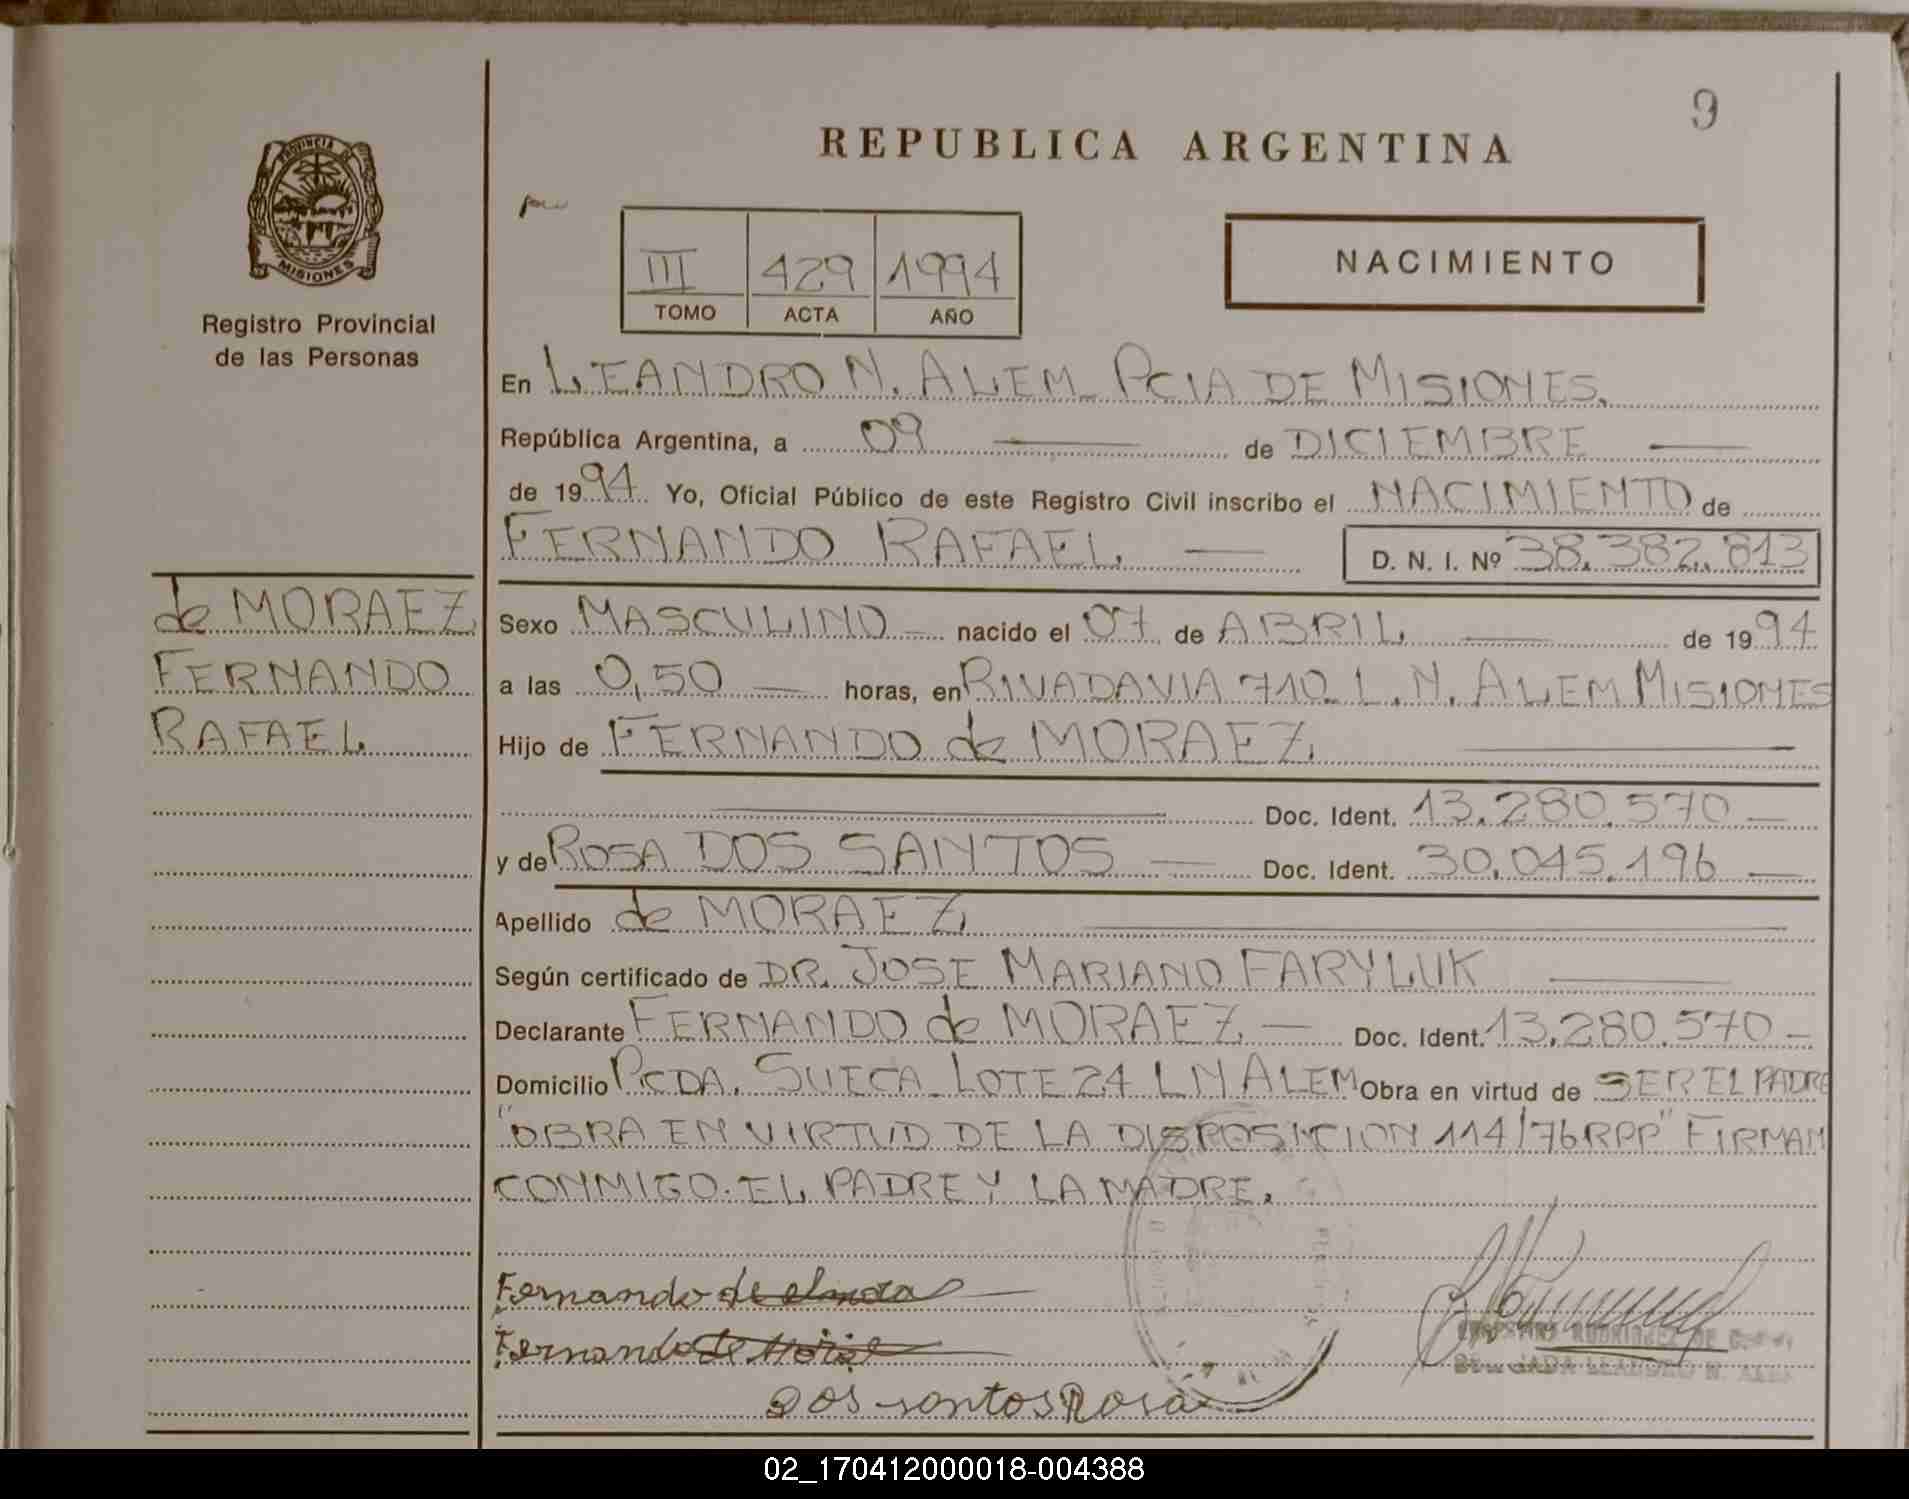 9
REPUBLICA ARGENTINA
PROVINCIA DE
MISIONES
Registro Provincial
de las Personas
III 429 1994
TOMO ACTA AÑO
NACIMIENTO
En LEANDRO N. ALEM PCIA DE MISIONES.
República Argentina, a 09 de DICIEMBRE
de 1994 Yo, Oficial Público de este Registro Civil inscribo el NACIMIENTO de
FERNANDO RAFAEL D. N. I. Nº 38.382.813
de MORAEZ
FERNANDO
RAFAEL
Sexo MASCULINO nacido el 07 de ABRIL de 1994
a las 0,50 horas, en RIVADAVIA 710 L. N. ALEM MISIONES
Hijo de FERNANDO de MORAEZ
Doc. Ident. 13.280.570
y de ROSA DOS SANTOS Doc. Ident. 30.045.196
Apellido de MORAEZ
Según certificado de DR. JOSE MARIANO FARYLUK
Declarante FERNANDO de MORAEZ Doc. Ident. 13.280.570
Domicilio PCDA. SUECA LOTE 24 L N ALEM Obra en virtud de SER EL PADRE
"OBRA EN VIRTUD DE LA DISPOSICION 114/76 RPP" FIRMAN
CONMIGO. EL PADRE Y LA MADRE.
Fernando de
Fernando de
Dos santos Rosa
RODRIGUEZ DE
LEANDRO N. ALEM
02_170412000018-004388